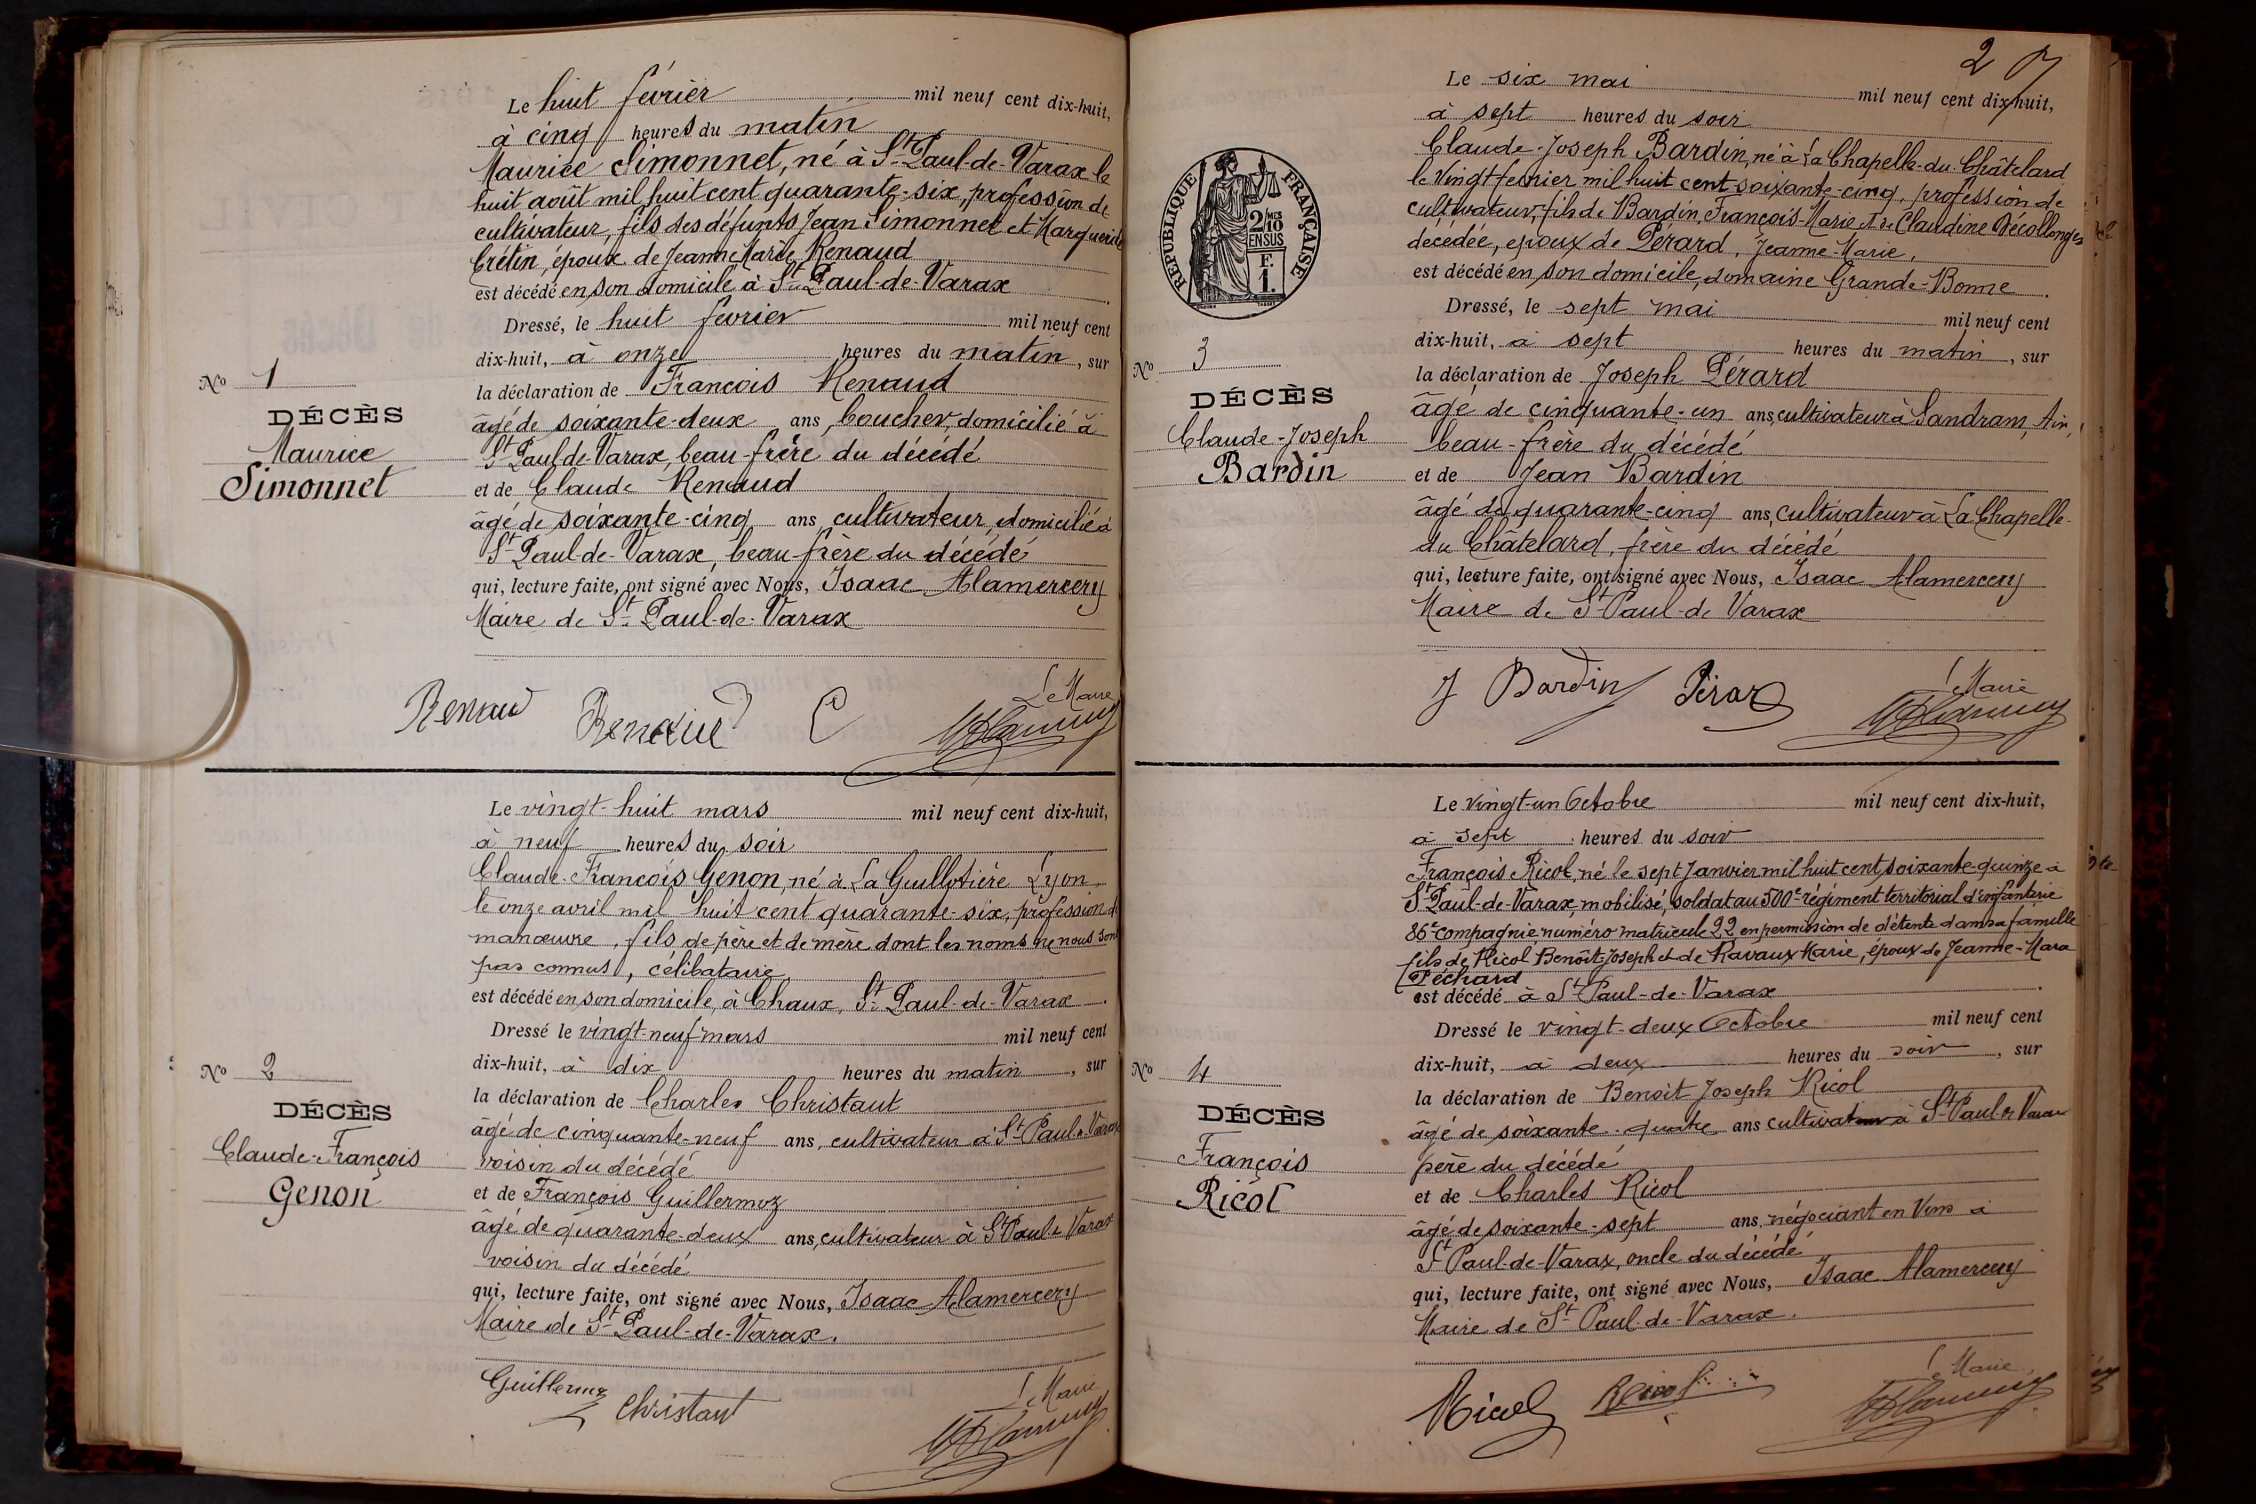 Le huit février mil neuf cent dix-huit,
à cinq heures du matin
Maurice Simonnet, né à St Paul-de-Varax le
huit août mil huit cent quarante-six, profession de
cultivateur, fils des défunts Jean Simonnet et Marguerite
Crétin, époux de Jeanne Marie Renaud
est décédé en son domicile à St Paul-de-Varax.
Dressé, le huit février mil neuf cent
dix-huit, à onze heures du matin, sur
la déclaration de François Renaud
âgé de soixante-deux ans, boucher, domicilié à
St Paul de Varax, beau-frère du décédé
et de Claude Renaud
âgé de soixante-cinq ans, cultivateur, domicilié à
St Paul-de-Varax, beau-frère du décédé
qui, lecture faite, ont signé avec Nous, Isaac Alamercery
Maire de St Paul-de-Varax
No 1
DÉCÈS
Maurice
Simonnet
Renaud Renaud C
Le Maire
Le vingt-huit mars mil neuf cent dix-huit,
à neuf heures du soir
Claude-François Genon, né à La Guillotière Lyon
le onze avril mil huit cent quarante-six, profession de
manœuvre, fils de père et de mère dont les noms ne nous sont
pas connus, célibataire
est décédé en son domicile, à Chaux, St Paul-de-Varax.
Dressé le vingt-neuf mars mil neuf cent
dix-huit, à dix heures du matin, sur
la déclaration de Charles Christaut
âgé de cinquante-neuf ans, cultivateur à St Paul de Varax
voisin du décédé
et de François Guillermoz
âgé de quarante-deux ans, cultivateur à St Paul de Varax
voisin du décédé
qui, lecture faite, ont signé avec Nous, Isaac Alamercery
Maire de St Paul-de-Varax.
No 2
DÉCÈS
Claude-François
Genon
Guillermoz Christaut
Le Maire
27
Le six mai mil neuf cent dix-huit,
à sept heures du soir
Claude-Joseph Bardin, né à La Chapelle-du-Châtelard
le Vingt fevrier mil huit cent soixante-cinq, profession de
cultivateur, fils de Bardin, François-Marie et de Claudine Décollonges
décédée, époux de Pérard, Jeanne-Marie,
est décédé en son domicile, domaine Grande-Bonne.
Dressé, le sept mai mil neuf cent
dix-huit, à sept heures du matin, sur
la déclaration de Joseph Pérard
âgé de cinquante-un ans, cultivateur à Sandrans, Ain,
beau-frère du décédé
et de Jean Bardin
âgé de quarante-cinq ans, cultivateur à La Chapelle-
du Châtelard, frère du décédé
qui, lecture faite, ont signé avec Nous, Isaac Alamercery
Maire de St Paul-de Varax
RÉPUBLIQUE FRANÇAISE
2/10 MES
EN SUS
F.
1.
No 3
DÉCÈS
Claude-Joseph
Bardin
J Bardin Pérard
Le Maire
Le Vingt-un Octobre mil neuf cent dix-huit,
à sept heures du soir
François Ricol, né le sept Janvier mil huit cent soixante-quinze à
St Paul-de-Varax, mobilisé, soldat au 500e régiment territorial d'infanterie
86e compagnie, numéro matricule 22, en permission de détente dans sa famille
fils de Ricol Benoît-Joseph et de Ravaux Marie, époux de Jeanne-Mara
Péchard
est décédé à St Paul-de-Varax.
Dressé le vingt-deux Octobre mil neuf cent
dix-huit, à deux heures du soir, sur
la déclaration de Benoît Joseph Ricol
âgé de soixante-quatre ans cultivateur à St Paul de Varax
père du décédé
et de Charles Ricol
âgé de soixante-sept ans, négociant en Vins à
St Paul-de-Varax, oncle du décédé
qui, lecture faite, ont signé avec Nous, Isaac Alamercery
Maire de St Paul-de-Varax.
No 4
DÉCÈS
François
Ricol
Ricol Ricol
Le Maire